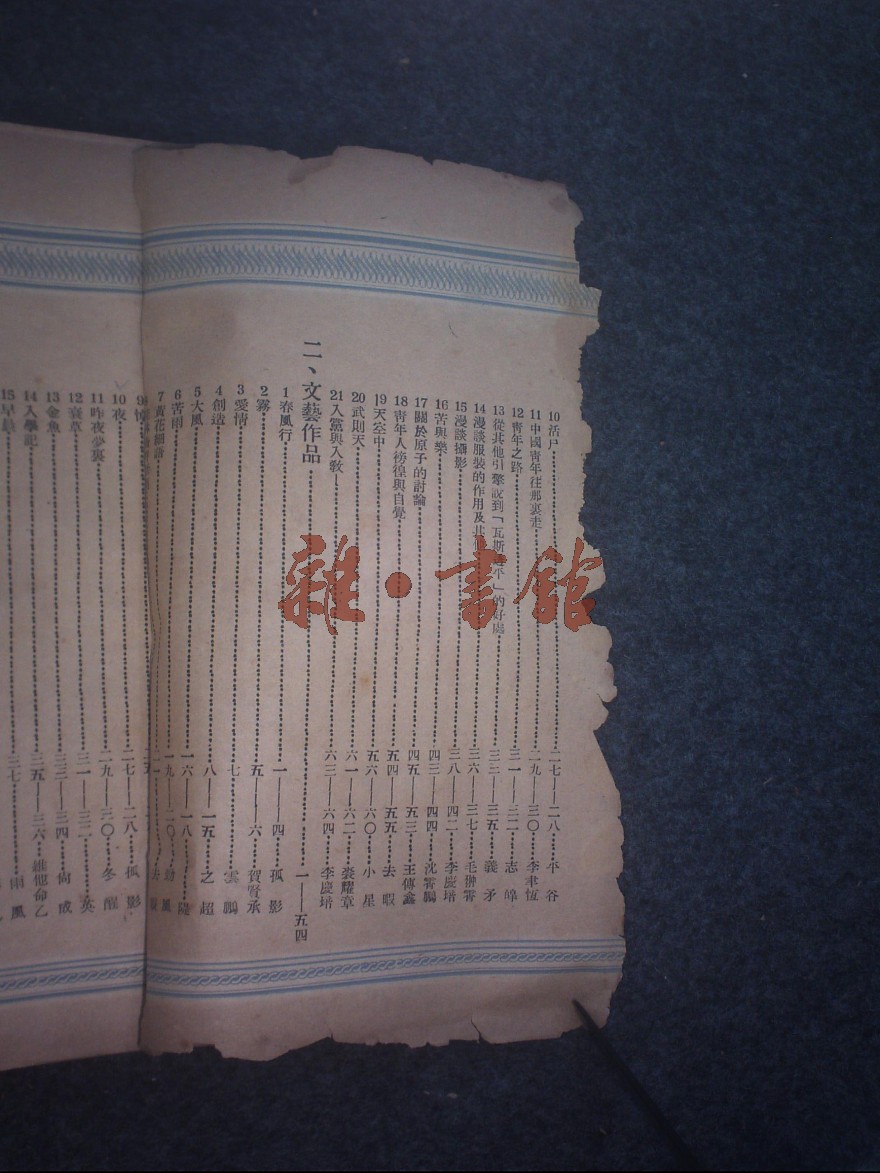 10活尸 二七——二八 平谷
11中國靑年往那裏走 二九——三〇 李聿恆
12靑年之路 三一——三二 志皡
13從其他引擎說到「瓦斯 平」的好處 三三——三五 義矛
14漫談服裝的作用及其他 三六——三七 毛翀霄
15漫談攝影 三八——四二 李慶堦
16苦與樂 四三——四四 沈霄鵬
17關於原子的討論 四五——五三 王傳鑫
18靑年人徬徨與自覺 五四——五五 去暇
19天空中 五六——六〇 小星
20武則天 六一——六二 裘耀章
21入黨與入敎 六三——六四 李慶堦
二、文藝作品 一——五四
1春風行 一——四 孤影
2霧 五——六 賀賢承
3愛情 七 雲鵬
4創造 八——一五 之超
5大風 一六——一八 隆
6苦雨 一九——二〇 風
7黃花 二一
10夜 二七——二八 孤影
11昨夜夢裏 二九——三〇 冬醒
12衰草 三一——三二 英
13金魚 三三——三四 尙戒
14入學記 三五——三六 維他命乙
15早晨 三七 雨風
雜·書館